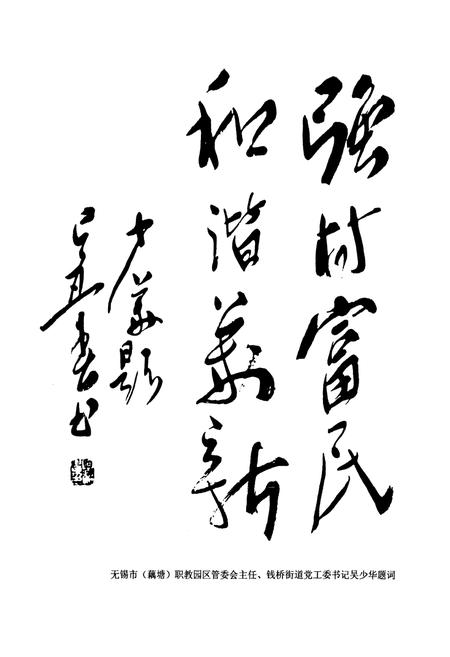 强村富民
和谐勤新
少华题
己丑春书
无锡市（藕塘）职教园区管委会主任、钱桥街道党工委书记吴少华题词